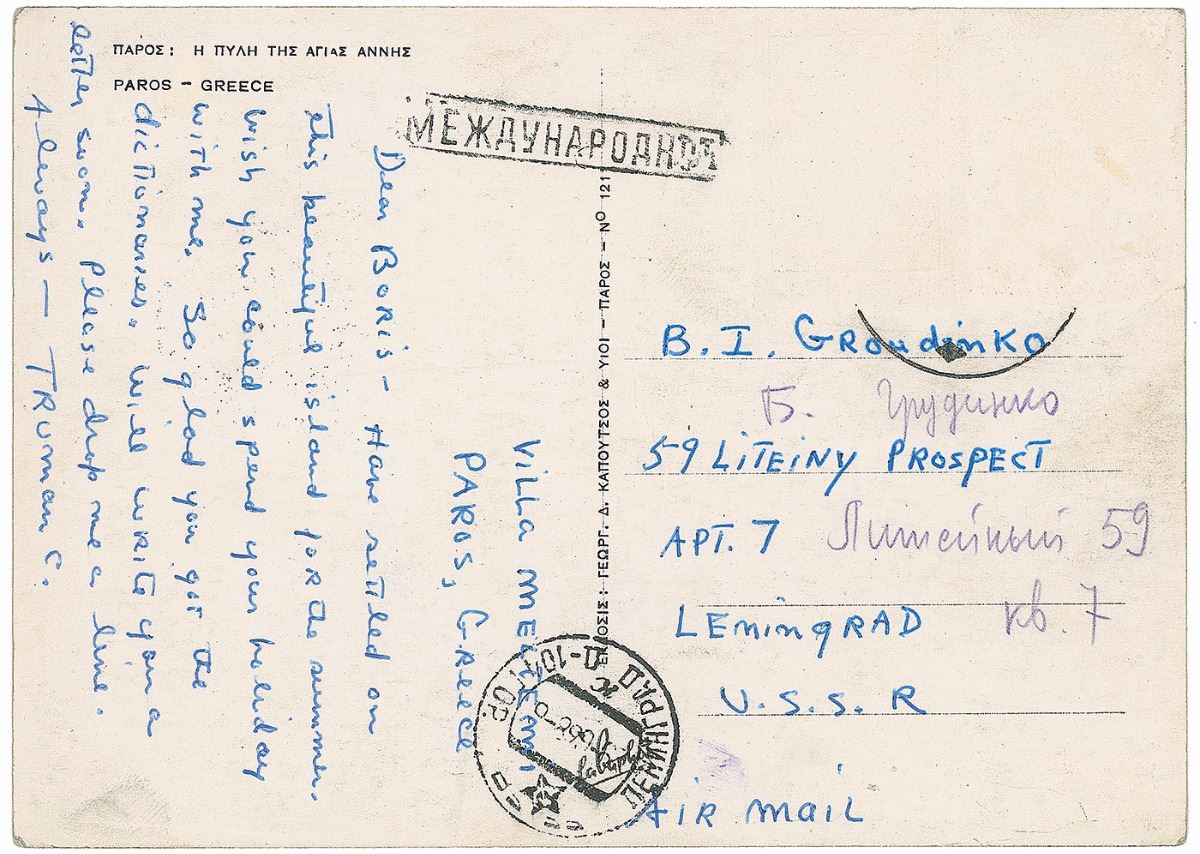 ΠΑΡΟΣ: Η ΠΥΛΗ ΤΗΣ ΑΓΙΑΣ ΑΝΝΗΣ
PAROS – GREECE
МЕЖДУНАРОДНОЕ
Villa Meltemi
PAROS, Greece
Dear Boris – Have settled on
this beautiful island for the summer.
Wish you could spend your holiday
with me. So glad you got the
dictionaries. Will write you a
letter soon. Please drop me a line.
Always — TRUMAN C.
ΕΚΔΟΣΙΣ: ΓΕΩΡΓ. Δ. ΚΑΠΟΥΤΣΟΣ & ΥΙΟΙ – ΠΑΡΟΣ – Νο 121
B. I. GROUDINKO
Б. Грудинко
59 LITEINY PROSPECT
APT. 7 Литейный 59
LENINGRAD кв. 7
U.S.S.R
AIR MAIL
ЛЕНИНГРАД